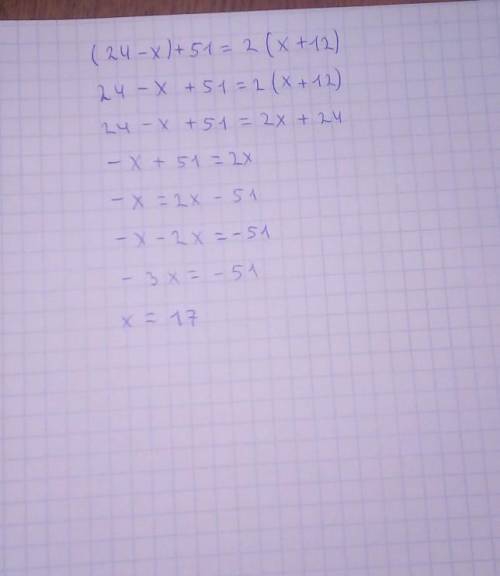 (24-x)+51=2(x+12)
24-x+51=2(x+12)
24-x+51=2x+24
-x+51=2x
-x=2x-51
-x-2x=-51
-3x=-51
x=17